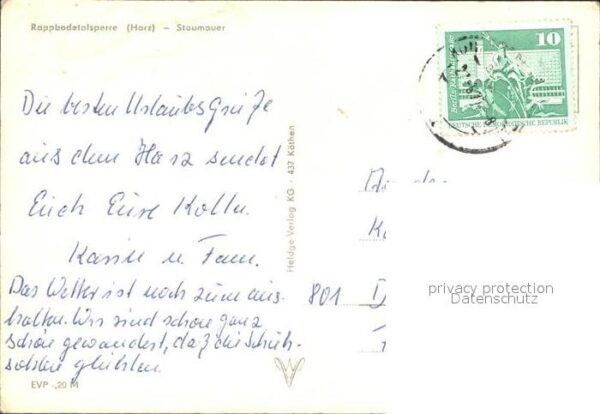 Rappbodetalsperre (Harz) – Staumauer
10
Berlin
DEUTSCHE DEMOKRATISCHE REPUBLIK
Die besten Urlaubsgrüße
aus dem Harz sendet
Euch Eure Kolln.
Karin u. Fam.
Das Wetter ist noch zum aus-
halten. Wir sind schon ganz
schön gewandert, daß die Schuh-
sohlen glühten.
An
801 D
Heldge-Verlag KG · 437 Köthen
EVP -,20 M
privacy protection
Datenschutz